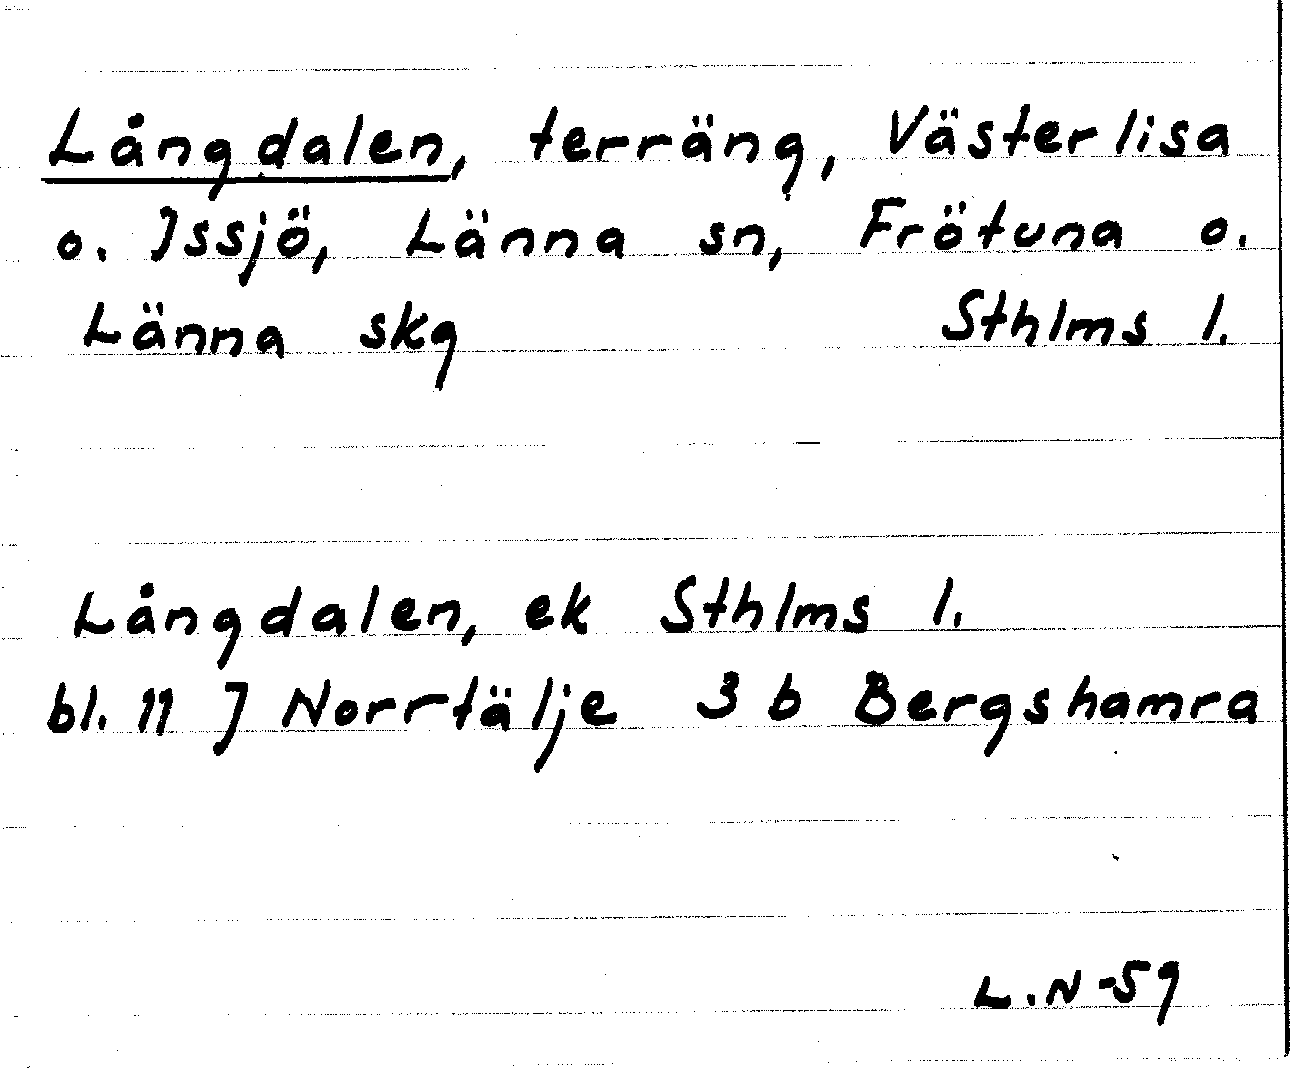 Långdalen, terräng, Västerlisa
o. Issjö, Länna sn, Frötuna o.
Länna skg Sthlms l.
Långdalen, ek Sthlms l.
bl. 11 J Norrtälje 3 b Bergshamra
L.N -59